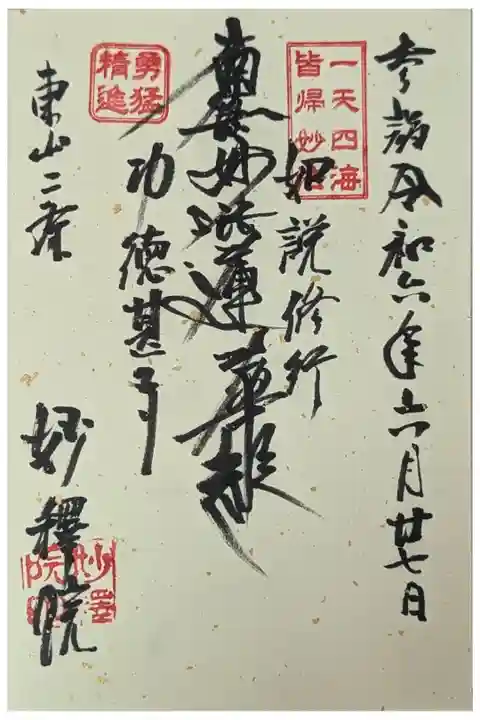 参詣 令和六年六月廿七日
一天四海
皆帰妙法
如説修行
南無妙法蓮華経
功徳甚多
勇猛
精進
東山二条
妙釋院
妙釋
院